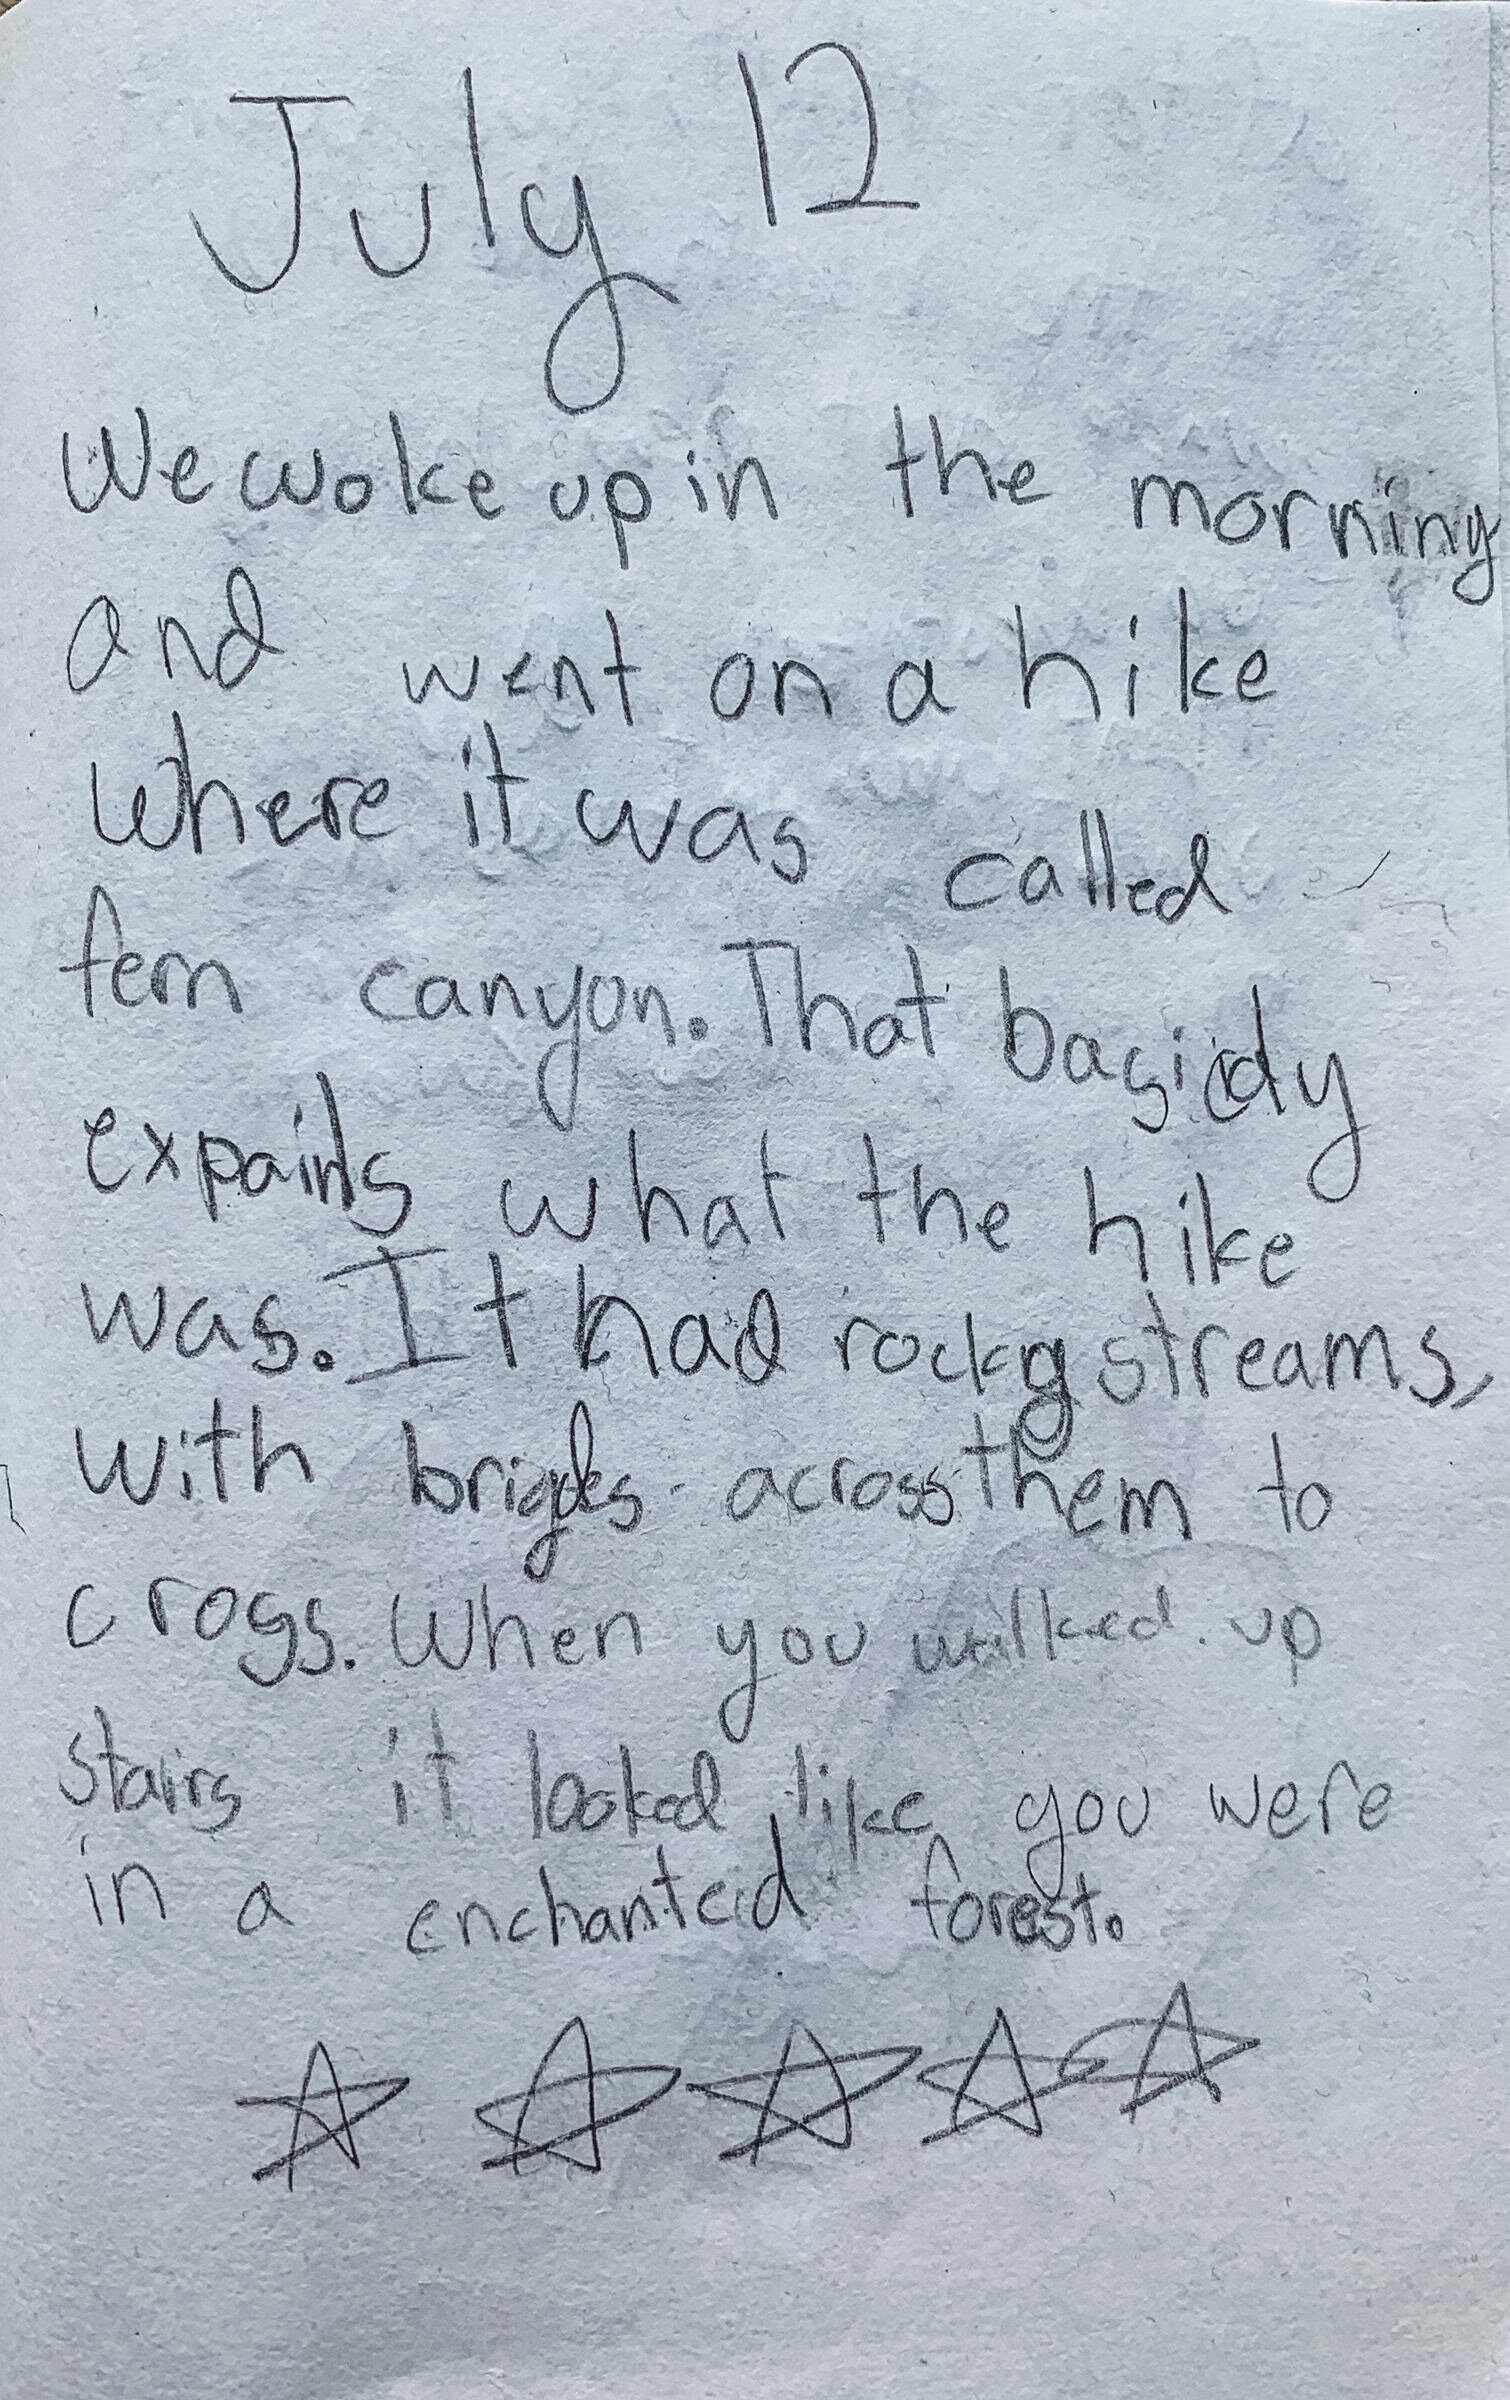 July 12
We woke up in the morning
and went on a hike
where it was called
fern canyon. That basicly
expains what the hike
was. It had rocky streams,
with brigdes across them to
cross. When you walked up
stairs it looked like you were
in a enchanted forest.